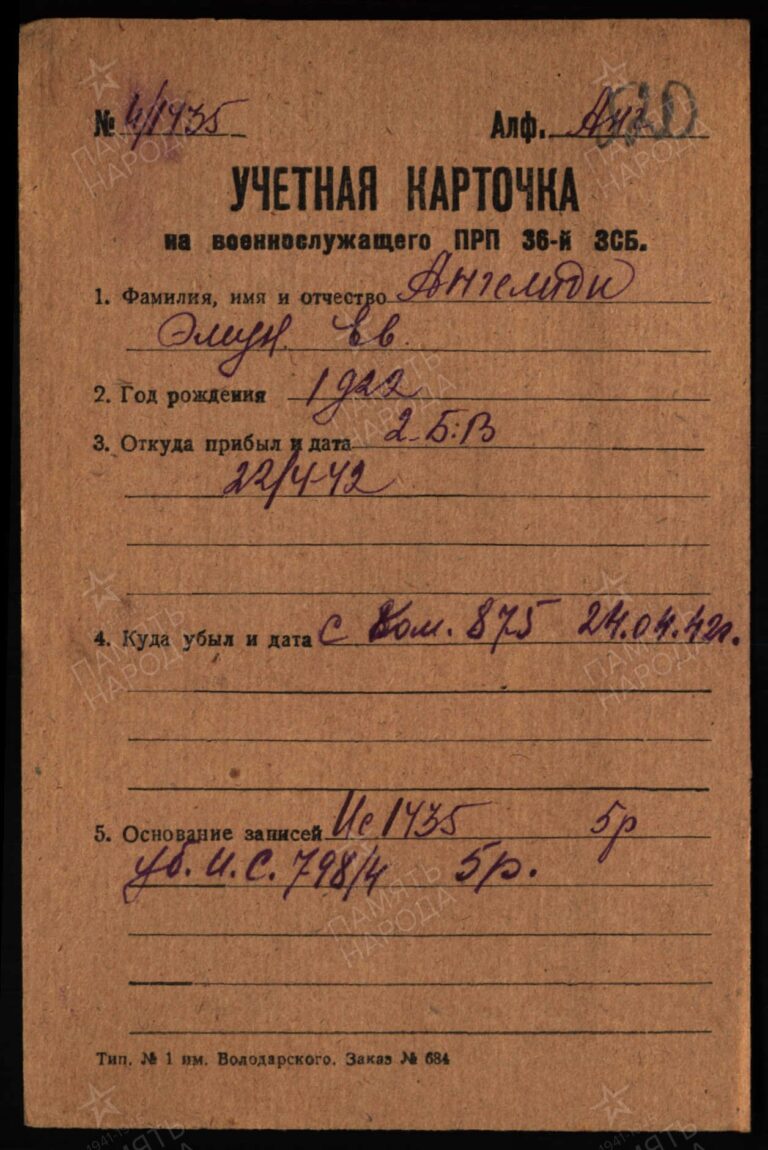 № 4/1435 Алф. Анг
УЧЕТНАЯ КАРТОЧКА
на военнослужащего ПРП 36-й ЗСБ.
1. Фамилия, имя и отчество Ангелиди
Ев.
2. Год рождения 1922
3. Откуда прибыл и дата 2-Б:В
22/4-42
4. Куда убыл и дата с Ком. 875 24.04.42г.
5. Основание записей Ис 1435 5р
уб. И.С. 798/4 5р.
Тип. № 1 им. Володарского. Заказ № 684
ПАМЯТЬ
НАРОДА